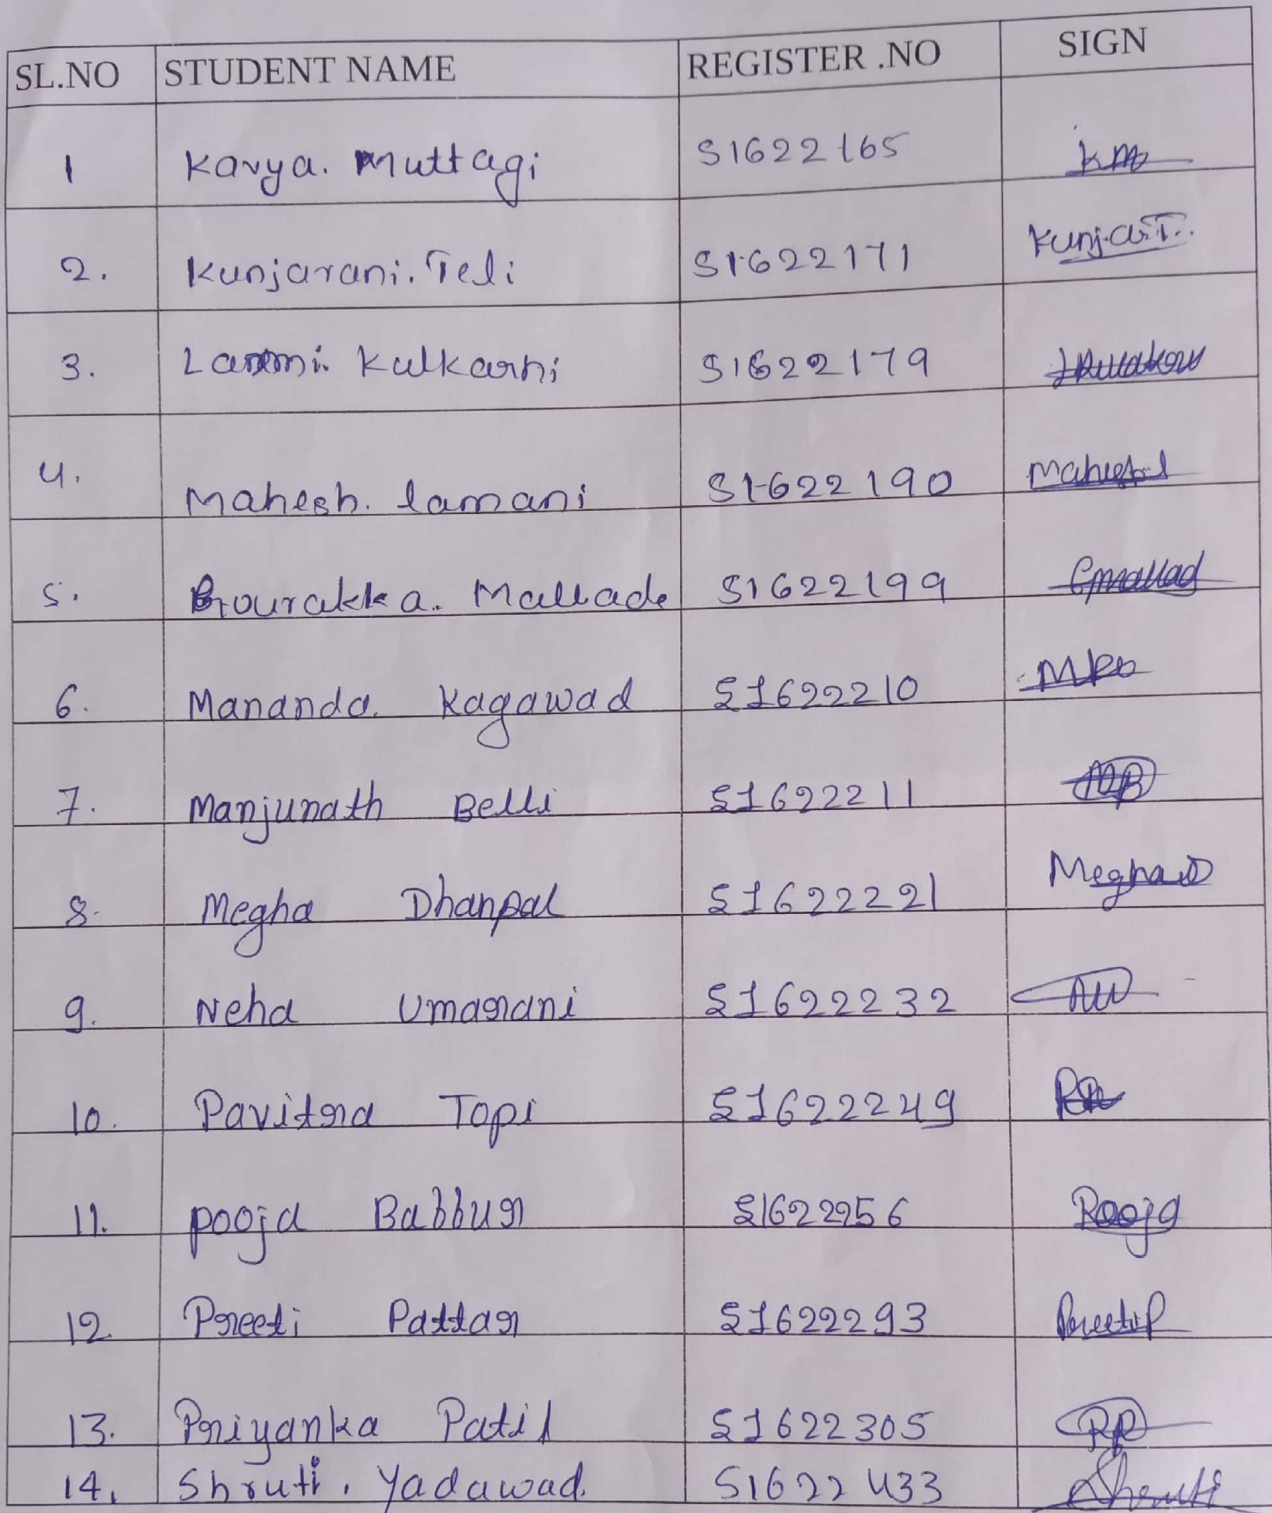 SL.NO STUDENT NAME REGISTER .NO SIGN
1 Kavya. Muttagi S1622165 km
2. Kunjarani. Teli S1622171 Kunja.T.
3. Laxmi. Kulkarni S1622179
4. Mahesh. lamani S1622190 Mahesh.l
5. Gourakka. Mallade S1622199 Gmallad
6. Mananda. Kagawad S1622210
7. Manjunath Belli S1622211 MB
8. Megha Dhanpal S1622221 Megha D
9. Neha Umarani S1622232 NU
10. Pavitra Topi S1622249
11. Pooja Babbur S1622256 Pooja
12. Preeti Pattar S1622293 Preeti P
13. Priyanka Patil S1622305 PP
14. Shruti. Yadawad. S1622433 Shruti